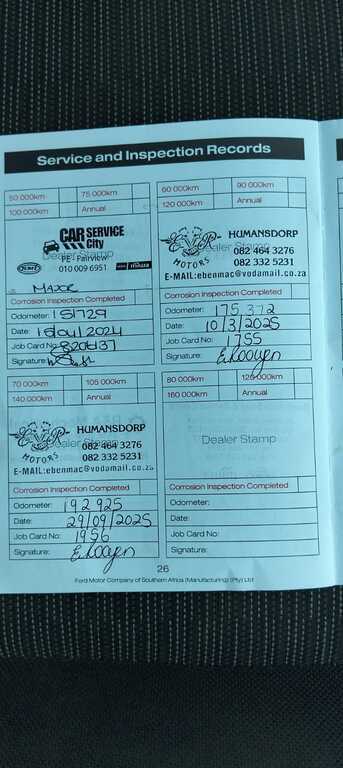 Service and Inspection Records
50 000km 75 000km
100 000km Annual
CAR SERVICE
City
Dealer Stamp
PE - Fairview
010 009 6951
MAJOR
Corrosion Inspection Completed
Odometer: 151729
Date: 15/04/2024
Job Card No:
Signature:
60 000km 90 000km
120 000km Annual
E R MOTORS
HUMANSDORP
Dealer Stamp
082 464 3276
082 332 5231
E-MAIL:ebenmac@vodamail.co.za
Corrosion Inspection Completed
Odometer: 175 372
Date: 10/3/2025
Job Card No: 1755
Signature: E. Kooyen
70 000km 105 000km
140 000km Annual
E R MOTORS
HUMANSDORP
Dealer Stamp
082 464 3276
082 332 5231
E-MAIL:ebenmac@vodamail.co.za
Corrosion Inspection Completed
Odometer: 192 925
Date: 29/09/2025
Job Card No: 1956
Signature: E. Kooyen
80 000km 120 000km
160 000km Annual
Dealer Stamp
Corrosion Inspection Completed
Odometer:
Date:
Job Card No:
Signature:
26
Ford Motor Company of Southern Africa (Manufacturing) (Pty) Ltd